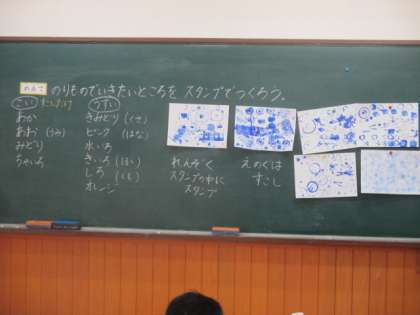 めあて のりものでいきたいところを スタンプでつくろう。
こい
あか
あお (うみ)
みどり
ちゃいろ
うすい
きみどり (くさ)
ピンク (はな)
水いろ
きいろ
しろ (くも)
オレンジ
れんぞく
スタンプの中に
スタンプ
えのぐは
すこし